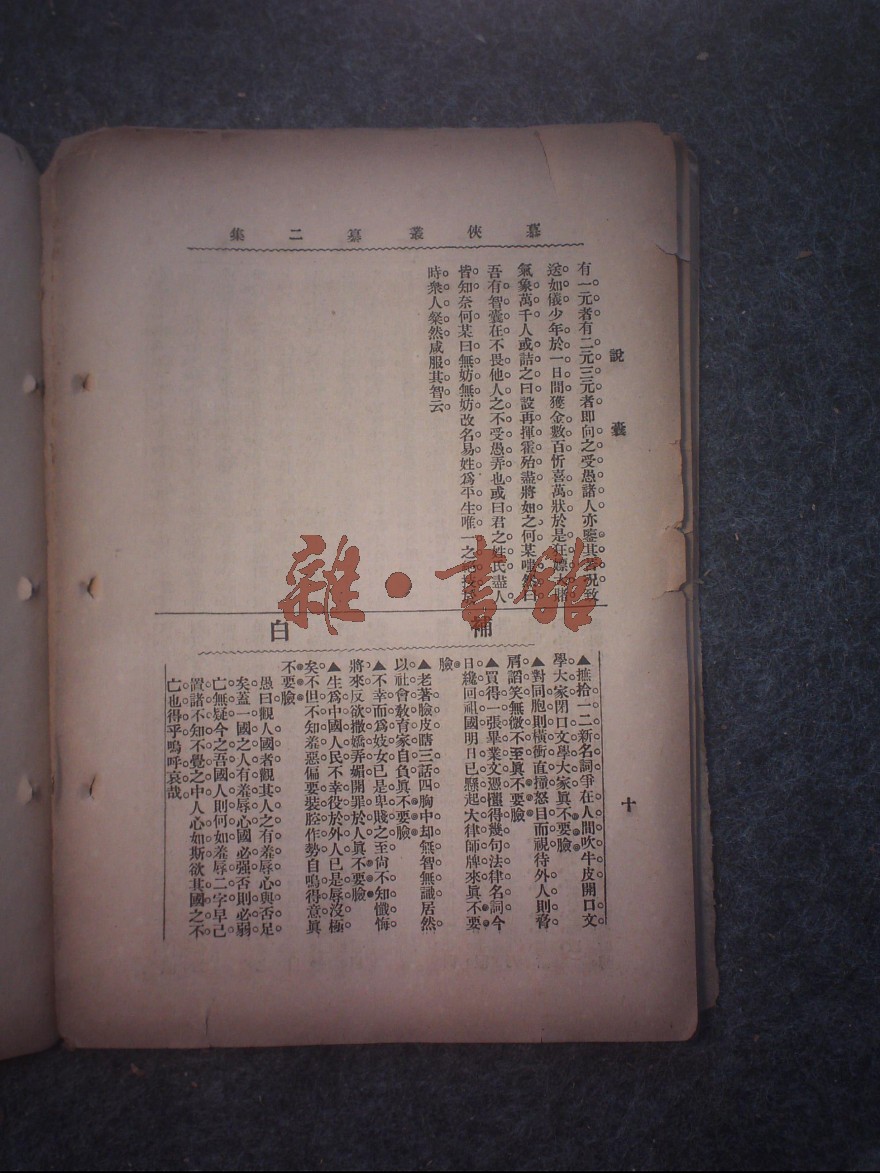 慕俠叢纂二集
說囊
十
有一元者有二元三元者即向之受愚諸人亦鑒其苦况致
送如儀少年於一日間獲金數百忻喜萬狀於是狂嫖大賭
氣象萬千人或詰之曰設再揮霍殆盡將如之何某嗤然曰
吾有智囊在不畏他人之不受愚弄也或曰君之姓氏盡人
皆知奈何某曰無妨無妨改名易姓爲平生唯一之
時衆人粲然咸服其智云
補白
▲摭拾一二新名詞爭在人間吹牛皮開口文
學大家閉口文學大家眞不要臉
▲對同胞則橫衝直撞怒目而視待外人則脅
肩諂笑無微不至眞不要臉
▲買得一張畢業文憑騙得幾句法律名詞今
日纔回祖國明日已懸起大律師牌來眞不要
臉
▲老著臉皮瞎三話四胸中却無智無識居然
以社會敎育家自負眞不要臉
▲不幸而爲妓女已是卑賤之至尙不知懺悔
將來反欲撒嬌弄媚開罪於人眞不要臉
▲生爲中國人民不幸役於外人已是辱沒極
矣不但不知羞惡偏要裝腔作勢自鳴得意眞
不要臉
愚曰觀人國者觀其人之有羞辱心與否足
矣蓋一國之人有羞辱心國必強否則必弱
亡無疑今之吾國人則何如羞辱二字早已
置諸不知不覺之中人心如斯欲其國之不
亡也得乎嗚呼哀哉
雜·書館